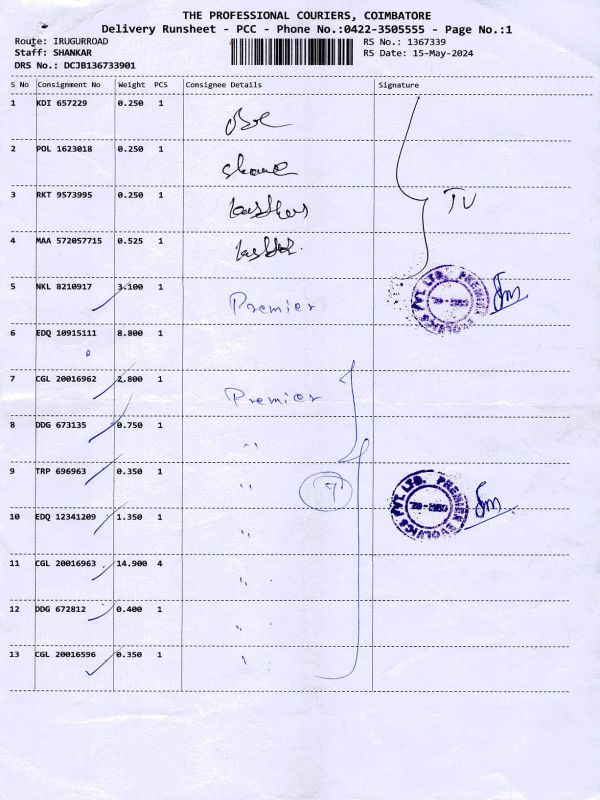 THE PROFESSIONAL COURIERS, COIMBATORE
Delivery Runsheet - PCC - Phone No.:0422-3505555 - Page No.:1
Route: IRUGURROAD RS No.: 1367339
Staff: SHANKAR RS Date: 15-May-2024
DRS No.: DCJB136733901
S No Consignment No Weight PCS Consignee Details Signature
1 KDI 657229 0.250 1
2 POL 1623018 0.250 1
3 RKT 9573995 0.250 1
4 MAA 572057715 0.525 1
5 NKL 8210917 3.100 1 Premier
6 EDQ 10915111 8.800 1
7 CGL 20016962 2.800 1 Premier
8 DDG 673135 0.750 1 "
9 TRP 696963 0.350 1 "
10 EDQ 12341209 1.350 1 "
11 CGL 20016963 14.900 4 "
12 DDG 672812 0.400 1 "
13 CGL 20016596 0.350 1 "
PREMIER EVOLVICS PVT. LTD.
PREMIER EVOLVICS PVT. LTD.